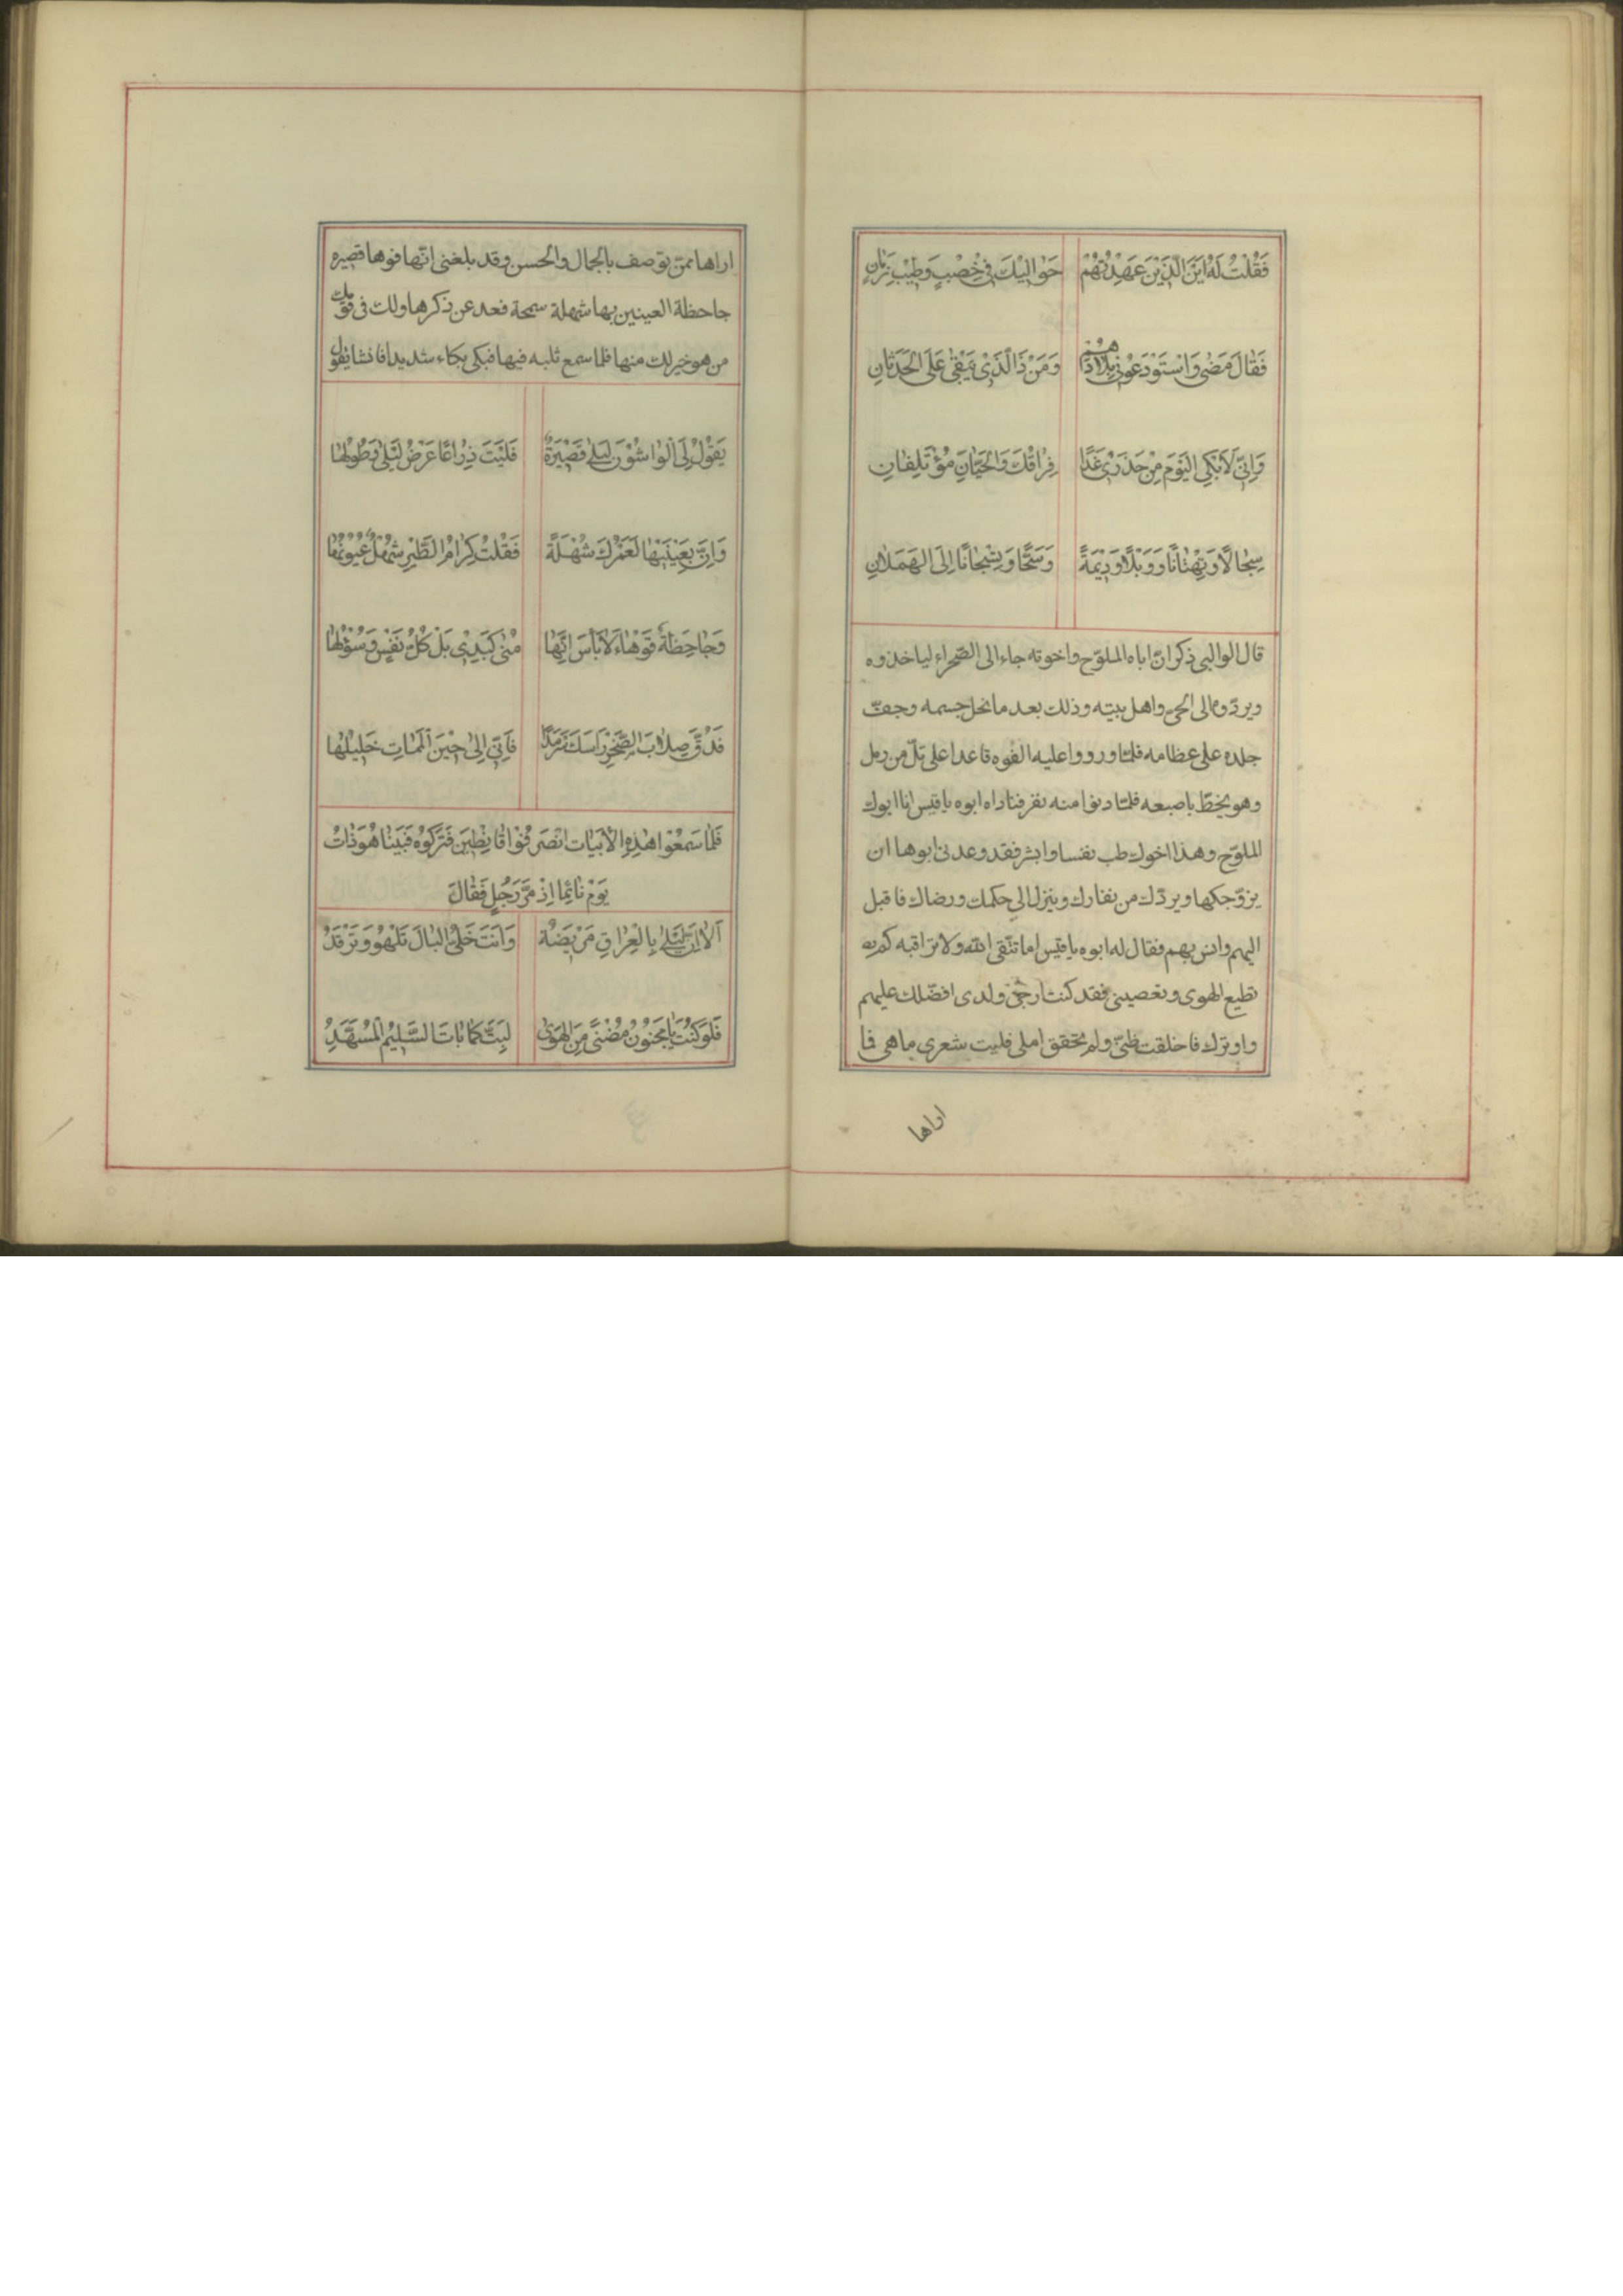 فَقُلْتُ لَهُ اَيْنَ الَّذَيْنَ عَهِدْتُهُمْ حَوَالَيْكَ فِي خِصْبٍ وَطِيْبِ زَمٰانٍ
فَقٰالَ مَضٰى وَاسْتَوْدَعُوْنِي بِلاٰدَهُمْ وَمَنْ ذَا الَّذِيْ يَبْقٰى عَلَى الْحَدَثٰانِ
وَاِنّي لَاَبْكِى الْيَوْمَ مِنْ حَذَرِيْ غَدًا فِرٰاقَكَ وَالْحَيّٰانِ مُؤْتَلِفٰانِ
سِجٰالًا وَتِهْتٰانًا وَوَبْلًا وَدِيْمَةً وَسَحًّا وَتِسْجٰانًا اِلَى الهَمَلاٰنِ
قال الوالبي ذكر انّ اباه الملوّح واخوته جاء الى الصّحراء لياخذوه
ويردّوه الى الحيّ واهل بيته وذلك بعد ما نحل جسمه وجفّ
جلده على عظامه فلمّا وردوا عليه الفوه قاعدا على تلّ من رمل
وهو يخطّ باصبعه فلمّا دنوا منه نفر فناداه ابوه يا قيس انا ابوك
الملوّح وهذا اخوك طب نفسا وابشر فقد وعدنى ابوها ان
يزوّجكها ويردّك من نفارك وينزل الى حكمك ورضاك فاقبل
اليهم وانس بهم فقال له ابوه يا قيس اما تتّقى الله ولا تراقبه كم
تطيع الهوى وتعصينى فقد كنت ارجى ولدى افضّلك عليهم
واوثرك فاخلفت ظنّي ولم تحقق املى فليت شعرى ما هى فا
اراها
اراها ممّن توصف بالجمال والحسن وقد بلغنى انّها فوها قصيره
جاحظة العينين بها شهلة سمجة فعد عن ذكرها ولك فى قومك
من هو خير لك منها فلما سمع ثلبه فيها فبكى بكاء شديدا فانشا يقول
يَقُوْلُ لِىَ الْوٰاشُوْنَ لَيْلٰى قَصِيْرَةٌ فَلَيْتَ ذِرٰاعًا عَرْضُ لَيْلٰى وَطُوْلُهٰا
وَاِنَّ بِعَيْنَيْهٰا لَعَمْرُكَ شُهْلَةً فَقُلْتُ كِرٰامُ الطَّيْرِ شُهْلٌ عُيُوْنُهٰا
وَجٰاحِظَةٌ فَوْهٰاءُ لاٰ بَأْسَ اِنَّهٰا مُنٰى كَبَدِيْ بَلْ كُلُّ نَفْسٍ وَسُؤْلُهٰا
فَدُقَّ صِلاٰبَ الصَّخْرِ رَاسَكَ سَرْمَدًا فَاِنِّي اِلىٰ حِيْنَ الْمَمٰاتِ خَلِيْلُهٰا
فَلَمّٰا سَمِعُوْا هٰذِهِ الْاَبْيٰات انْصَرَفُوْا قٰانِطِيْنَ فَتَرَكُوْهُ فَبَيْنَا هُوَ ذٰاتَ
يَوْم نٰائِمًا اِذْ مَرَّ رَجُلٌ فَقٰالَ
اَلاٰ اِنَّ لَيْلٰى بِالْعِرٰاقِ مَرِيْضَةٌ وَاَنْتَ خَلِيُّ الْبٰالَ تَلْهُوْ وَتَرْقَدُ
فَلَوْ كُنْتَ يٰا مَجْنُوْنُ مُضْنًى مِنَ الْهَوىٰ لَبِتَّ كَمٰا بٰاتَ السَّلِيْمُ الْمُسَهَّدُ